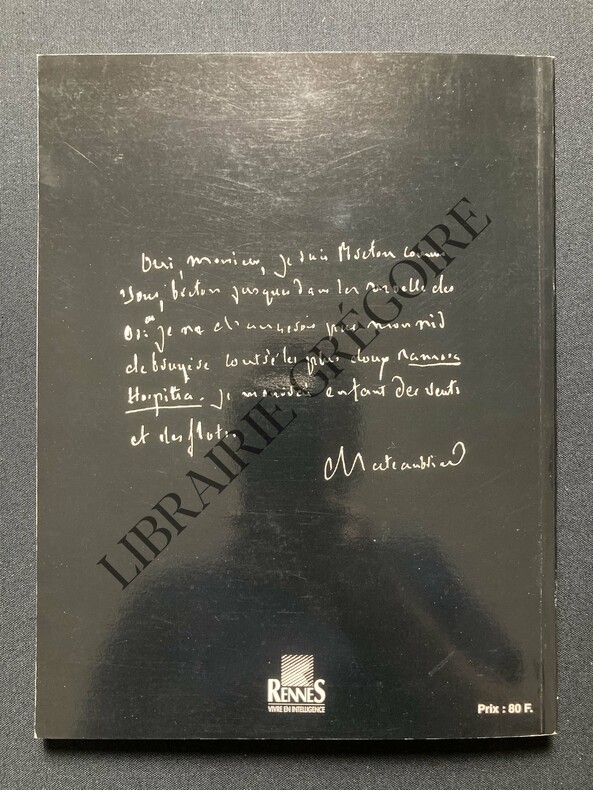 Oui, monsieur, je suis Breton comme
vous, breton jusques dans la moelle des
os: je ne changerois pas mon nid
de bruyère contre les plus doux Ramosa
Hospitia. je mourrai enfant des vents
et des flots.
Chateaubriand
LIBRAIRIE GRÉGOIRE
RENNES
VIVRE EN INTELLIGENCE
Prix : 80 F.